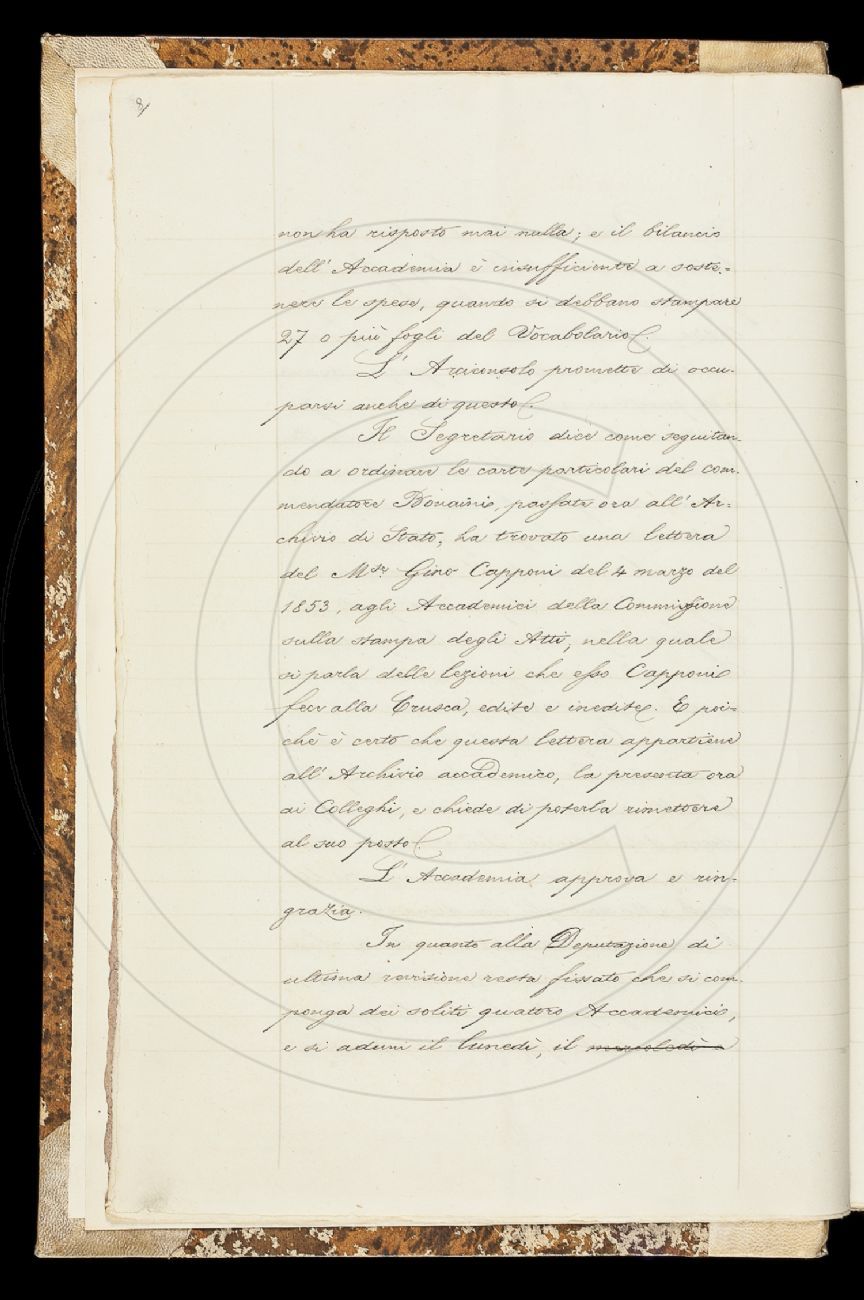 8
non ha risposto mai nulla; e il bilancio
dell' Accademia è insufficiente a soste-
nere le spese, quando si debbano stampare
27 o più fogli del Vocabolario.
L' Arciconsolo promette di occu-
parsi anche di questo.
Il Segretario dice come seguitan-
do a ordinare le carte particolari del com-
mendatore Bonaini, passate ora all' Ar-
chivio di Stato, ha trovato una lettera
del M.se Gino Capponi del 4 marzo del
1853, agli Accademici della Commissione
sulla stampa degli Atti, nella quale
si parla delle lezioni che esso Capponi
fece alla Crusca, edite e inedite. E poi-
chè è certo che questa lettera appartiene
all' Archivio accademico, la presenta ora
ai Colleghi, e chiede di poterla rimettere
al suo posto.
L' Accademia approva e rin-
grazia.
In quanto alla Deputazione di
ultima revisione resta fissato che si com-
ponga dei soliti quattro Accademici,
e si aduni il lunedì, il mercoledì e